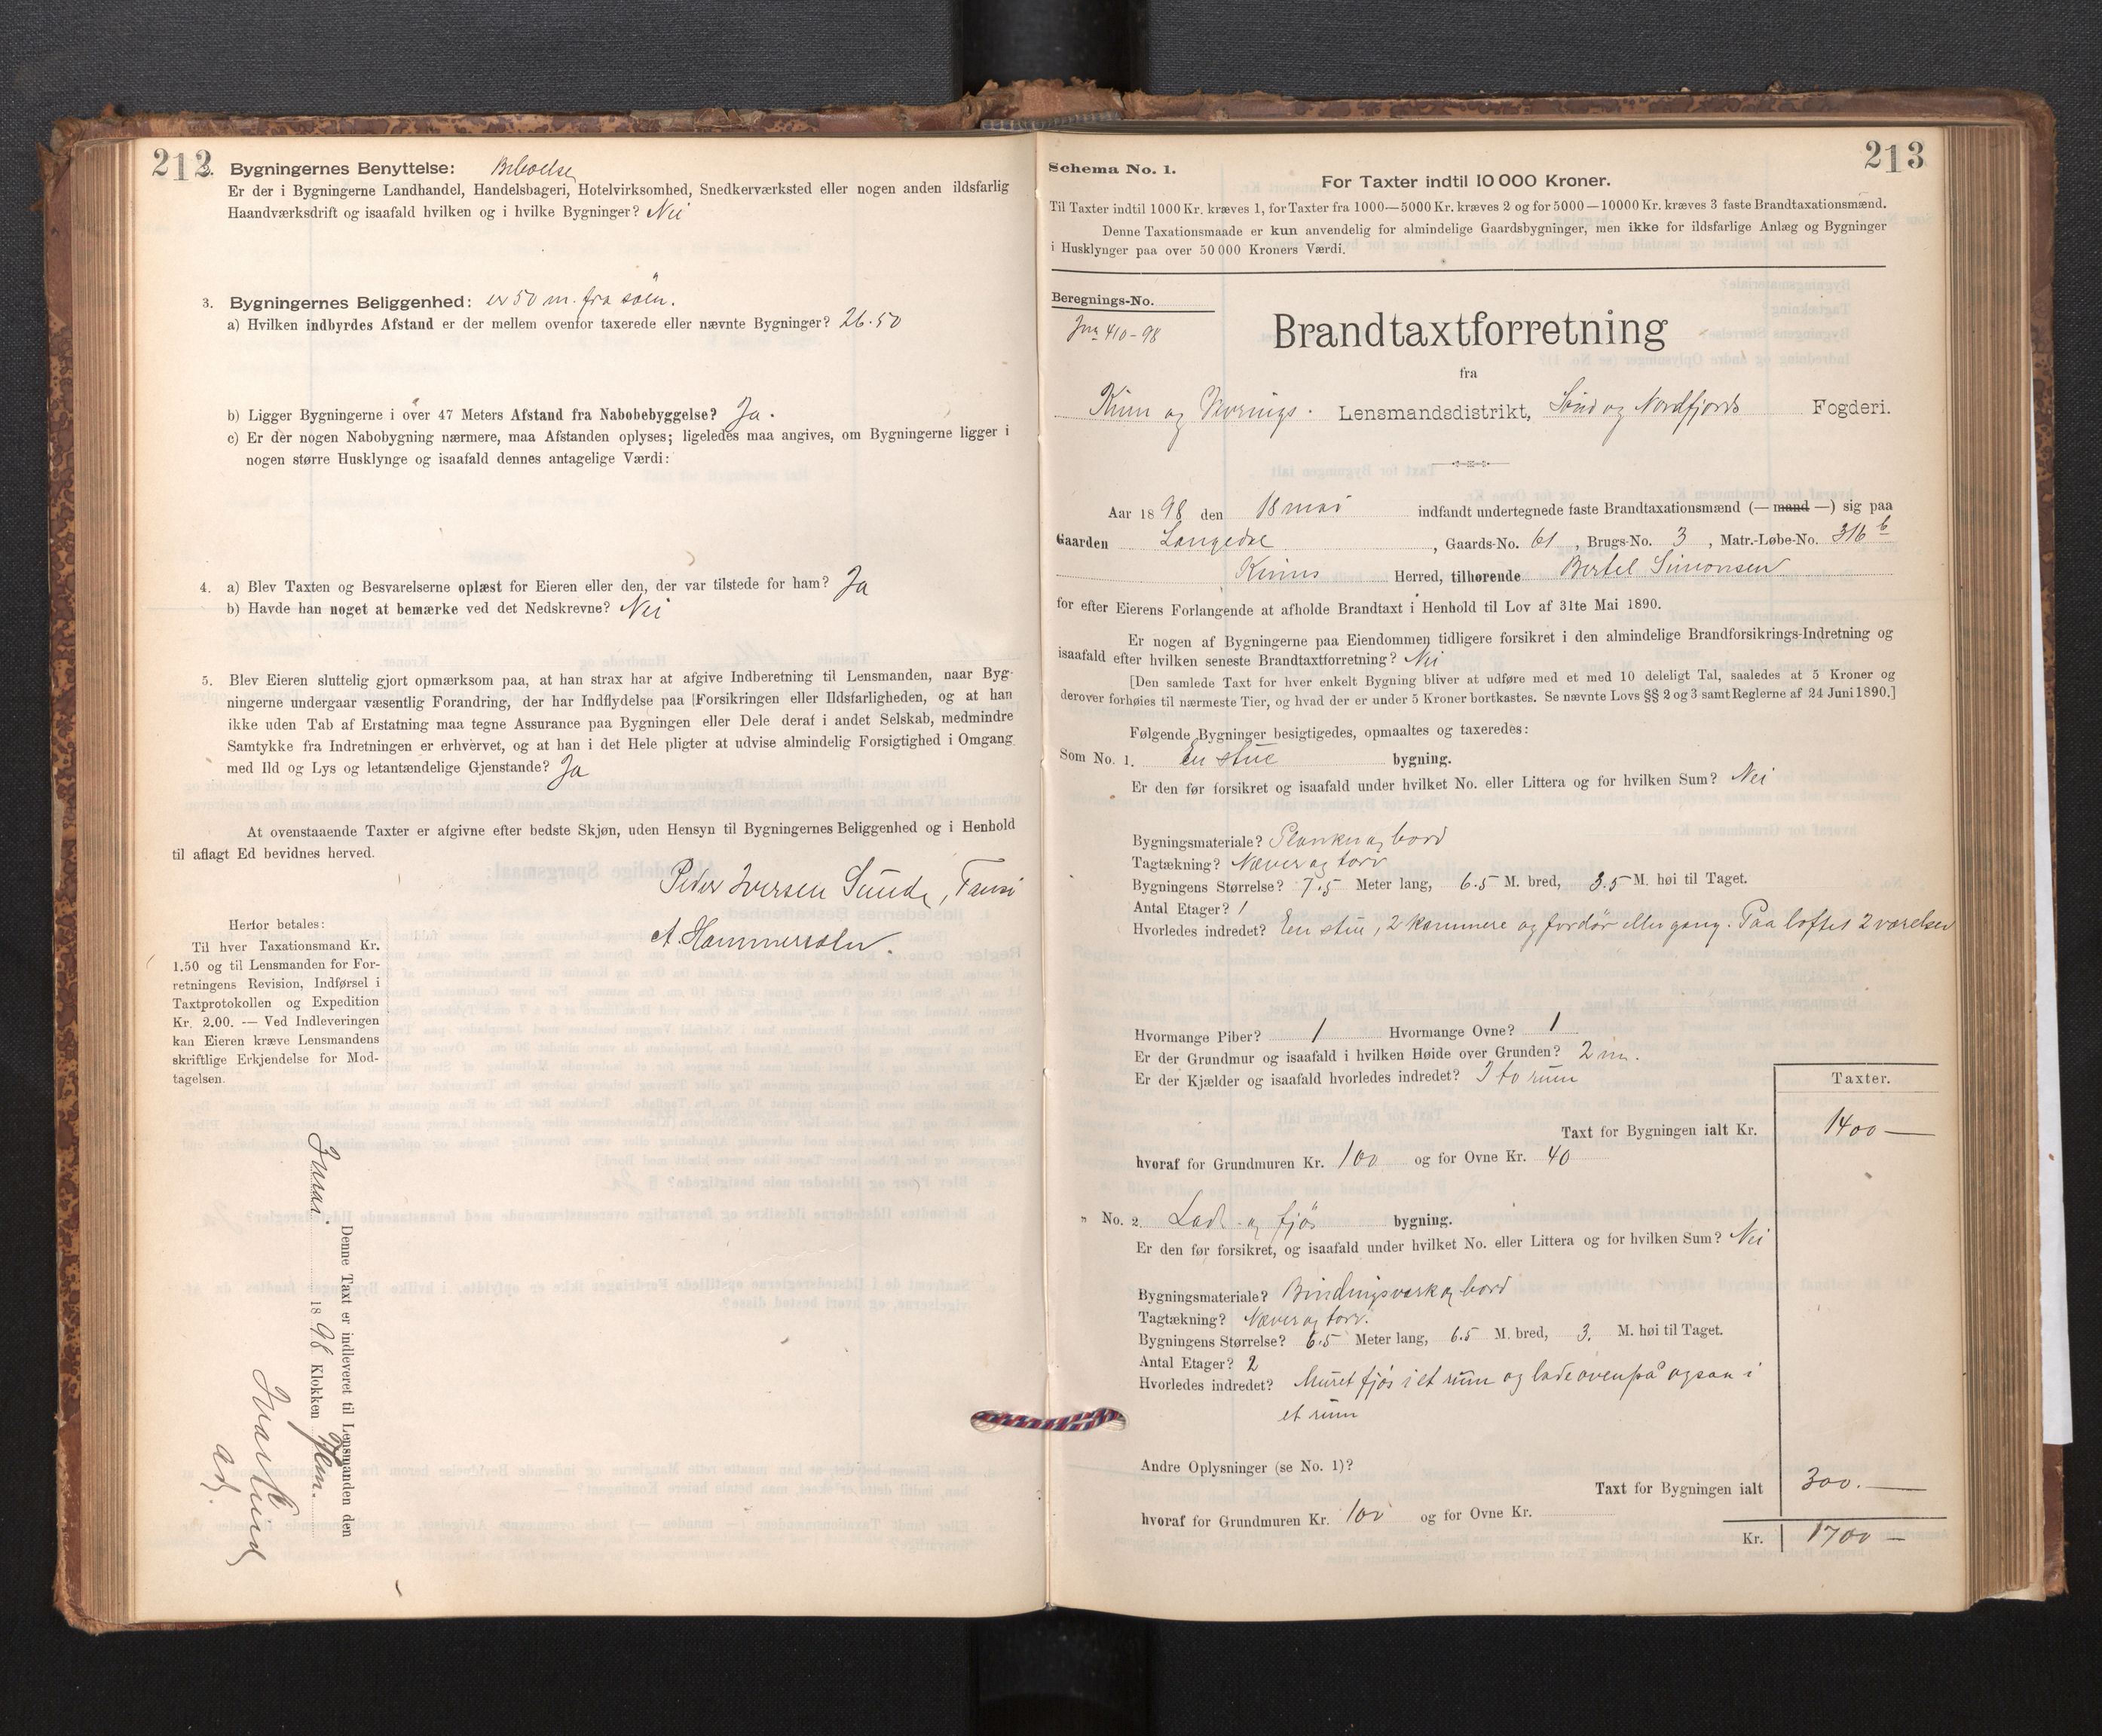 212
2. Bygningernes Benyttelse: Beboelse
Er der i Bygningerne Landhandel, Handelsbageri, Hotelvirksomhed, Snedkerværksted eller nogen anden ildsfarlig
Haandværksdrift og isaafald hvilken og i hvilke Bygninger? Nei
3. Bygningernes Beliggenhed: er 50 m. fra söen.
a) Hvilken indbyrdes Afstand er der mellem ovenfor taxerede eller nævnte Bygninger? 26.50
b) Ligger Bygningerne i over 47 Meters Afstand fra Nabobebyggelse? Ja.
c) Er der nogen Nabobygning nærmere, maa Afstanden oplyses; ligeledes maa angives, om Bygningerne ligger i
nogen større Husklynge og isaafald dennes antagelige Værdi:
4. a) Blev Taxten og Besvarelserne oplæst for Eieren eller den, der var tilstede for ham? Ja
b) Havde han noget at bemærke ved det Nedskrevne? Nei
5. Blev Eieren sluttelig gjort opmærksom paa, at han strax har at afgive Indberetning til Lensmanden, naar Byg-
ningerne undergaar væsentlig Forandring, der har Indflydelse paa Forsikringen eller Ildsfarligheden, og at han
ikke uden Tab af Erstatning maa tegne Assurance paa Bygningen eller Dele deraf i andet Selskab, medmindre
Samtykke fra Indretningen er erhvervet, og at han i det Hele pligter at udvise almindelig Forsigtighed i Omgang
med Ild og Lys og letantændelige Gjenstande? Ja
At ovenstaaende Taxter er afgivne efter bedste Skjøn, uden Hensyn til Bygningernes Beliggenhed og i Henhold
til aflagt Ed bevidnes herved.
Peder Iversen Sunde,
A. Hammersöen.
Herfor betales:
Til hver Taxationsmand Kr.
1.50 og til Lensmanden for For-
retningens Revision, Indførsel i
Taxtprotokollen og Expedition
Kr. 2.00. — Ved Indleveringen
kan Eieren kræve Lensmandens
skriftlige Erkjendelse for Mod-
tagelsen.
Denne Taxt er indleveret til Lensmanden den
18 98 Klokken
213
Schema No. 1.
For Taxter indtil 10 000 Kroner.
Til Taxter indtil 1000 Kr. kræves 1, for Taxter fra 1000—5000 Kr. kræves 2 og for 5000—10000 Kr. kræves 3 faste Brandtaxationsmænd.
Denne Taxationsmaade er kun anvendelig for almindelige Gaardsbygninger, men ikke for ildsfarlige Anlæg og Bygninger
i Husklynger paa over 50 000 Kroners Værdi.
Beregnings-No.
Jnr 410-98
Brandtaxtforretning
fra
Kinn og Vevrings. Lensmandsdistrikt, Sönd og Nordfjords Fogderi.
Aar 1898 den 18 mai indfandt undertegnede faste Brandtaxationsmænd (— mand —) sig paa
Gaarden Langedal, Gaards-No. 61, Brugs-No. 3, Matr.-Løbe-No. 316 b
Kinns Herred, tilhørende Bertel Simonsen
for efter Eierens Forlangende at afholde Brandtaxt i Henhold til Lov af 31te Mai 1890.
Er nogen af Bygningerne paa Eiendommen tidligere forsikret i den almindelige Brandforsikrings-Indretning og
isaafald efter hvilken seneste Brandtaxtforretning? Nei
[Den samlede Taxt for hver enkelt Bygning bliver at udføre med et med 10 deleligt Tal, saaledes at 5 Kroner og
derover forhøies til nærmeste Tier, og hvad der er under 5 Kroner bortkastes. Se nævnte Lovs §§ 2 og 3 samt Reglerne af 24 Juni 1890.]
Følgende Bygninger besigtigedes, opmaaltes og taxeredes:
Som No. 1. En stue bygning.
Er den før forsikret og isaafald under hvilket No. eller Littera og for hvilken Sum? Nei
Bygningsmateriale? Planker og bord
Tagtækning? Næver og torv
Bygningens Størrelse? 7.5 Meter lang, 6.5 M. bred, 3.5 M. høi til Taget.
Antal Etager? 1
Hvorledes indredet? En stue, 2 kammere og fordør eller gang. Paa loftet 2 værelser
Hvormange Piber? 1 Hvormange Ovne? 1
Er der Grundmur og isaafald i hvilken Høide over Grunden? 2 m.
Er der Kjælder og isaafald hvorledes indredet? I to rum
Taxter.
Taxt for Bygningen ialt Kr. 1400 —
hvoraf for Grundmuren Kr. 100 og for Ovne Kr. 40
„ No. 2. Lade og fjös bygning.
Er den før forsikret, og isaafald under hvilket No. eller Littera og for hvilken Sum? Nei
Bygningsmateriale? Bindingsverk og bord
Tagtækning? Næver og torv.
Bygningens Størrelse? 6.5 Meter lang, 6.5 M. bred, 3. M. høi til Taget.
Antal Etager? 2
Hvorledes indredet? Muret fjös i et rum og lade ovenpå ogsaa i
et rum
Andre Oplysninger (se No. 1)?
Taxt for Bygningen ialt 300. —
hvoraf for Grundmuren Kr. 100 og for Ovne Kr.
Kr. 1700 —